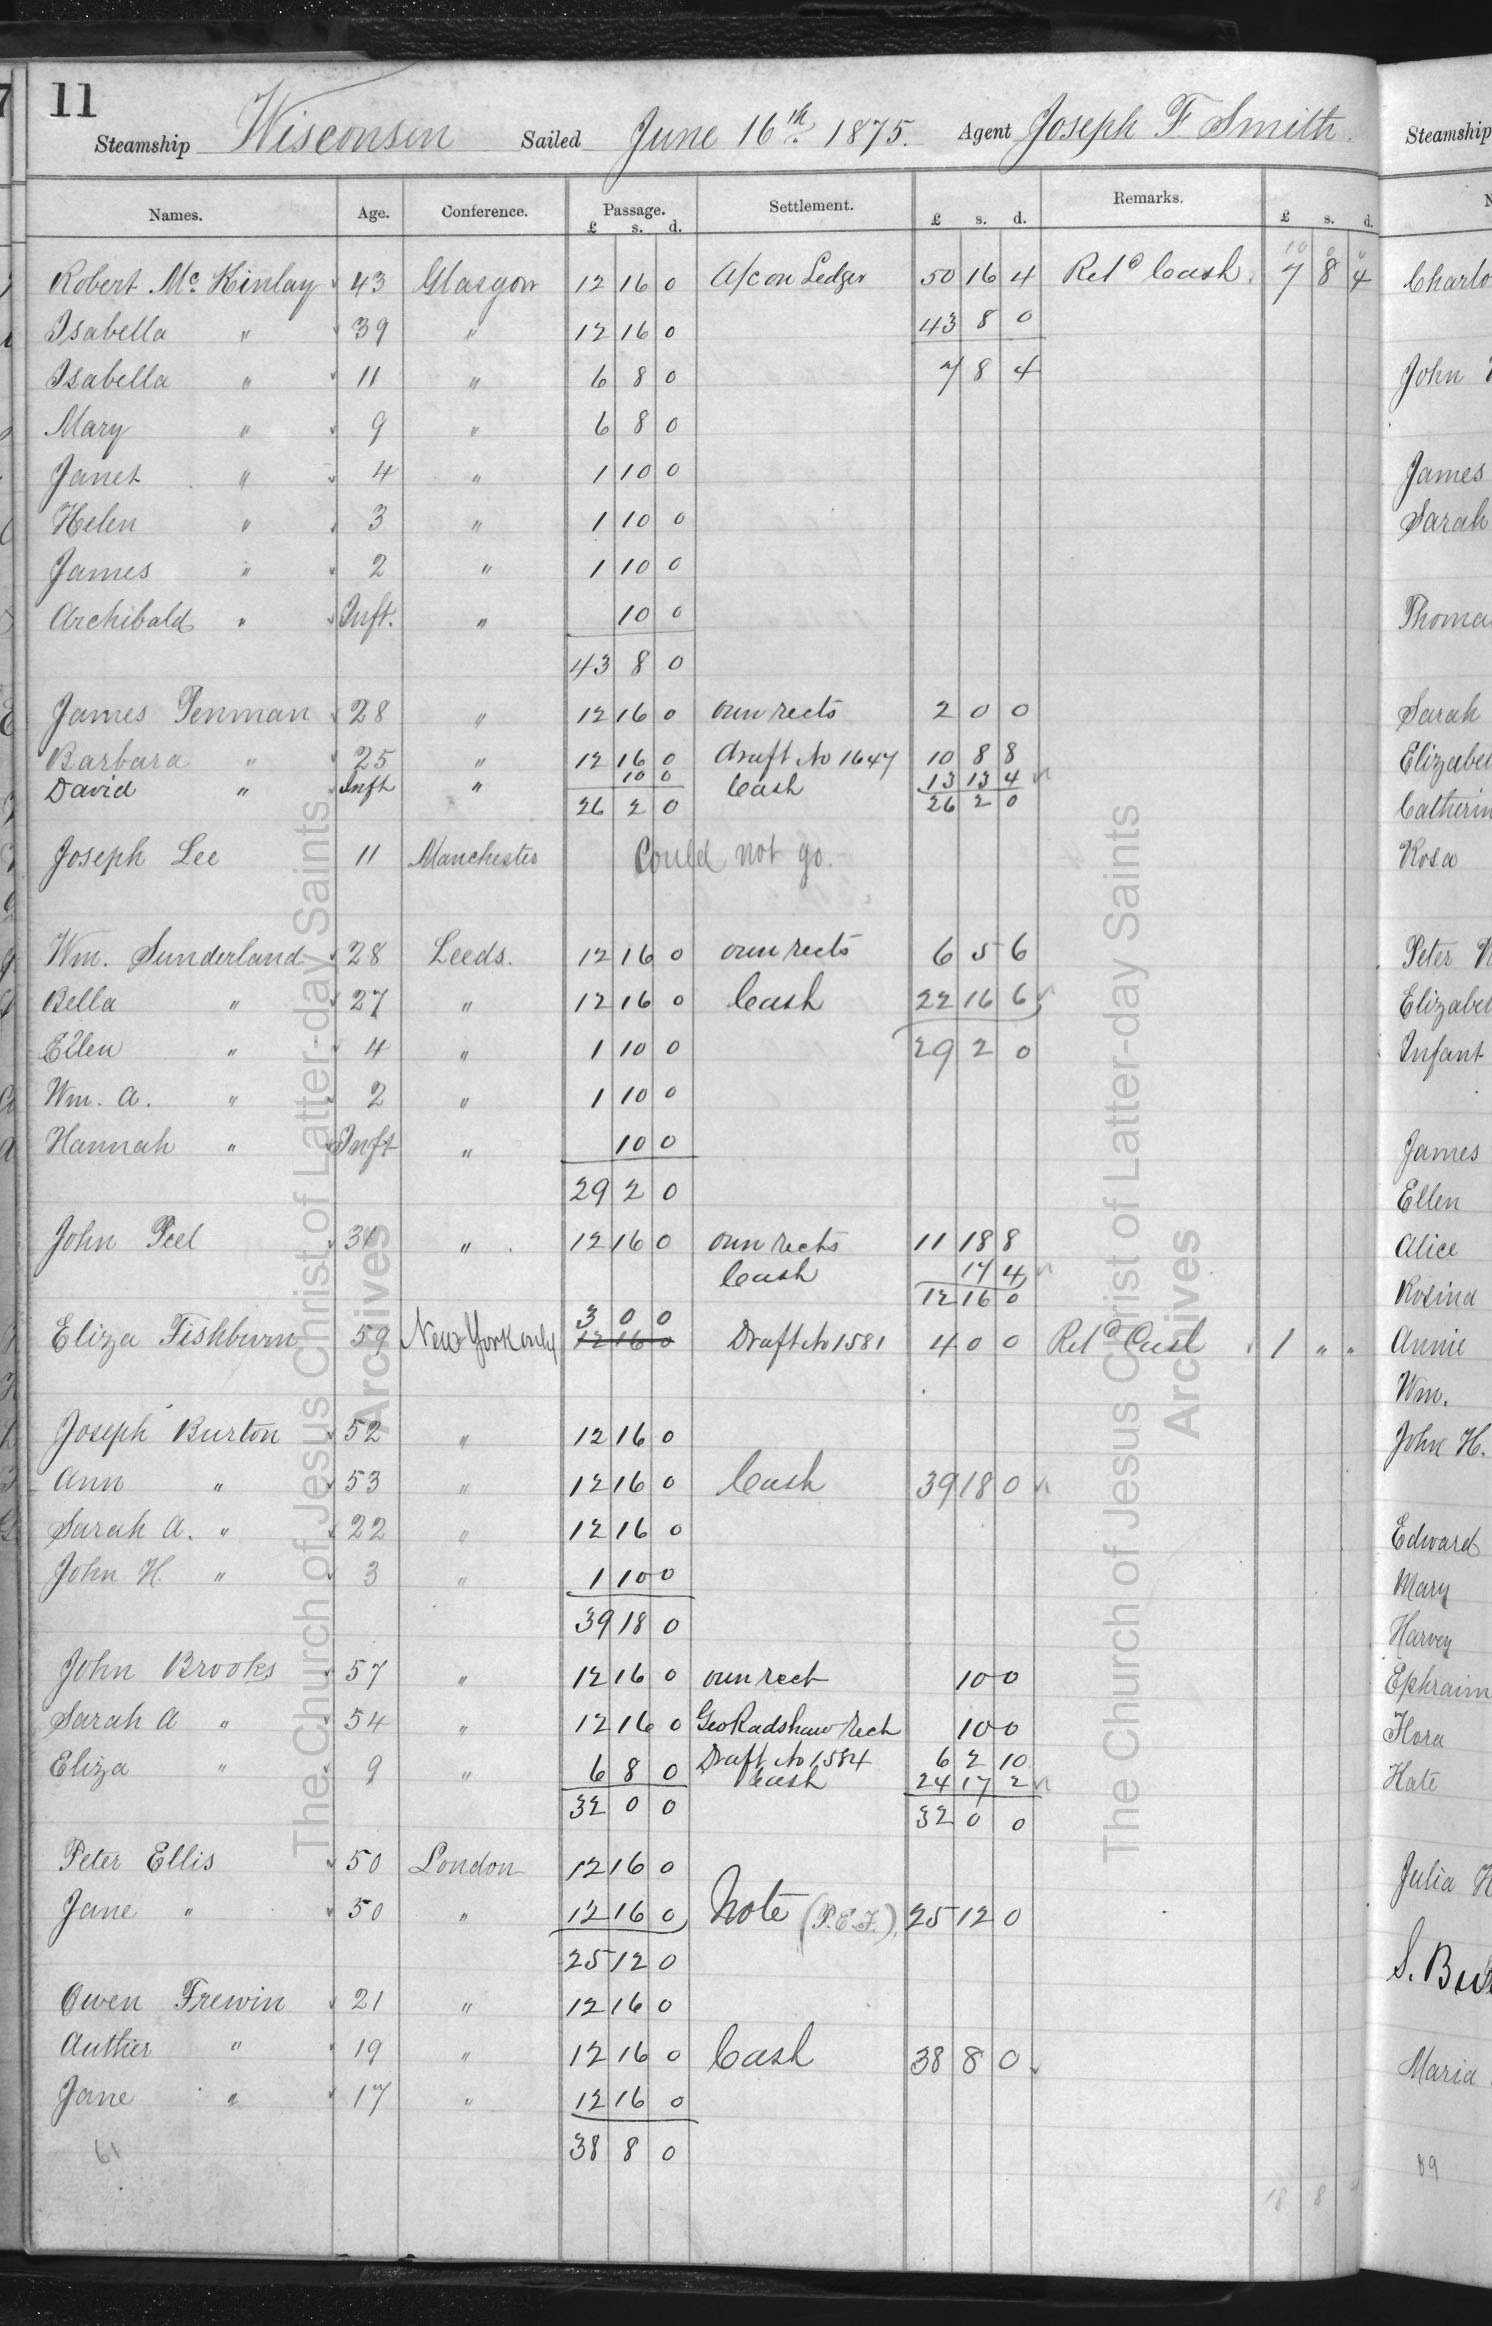 11
Steamship Wisconsin Sailed June 16th. 1875. Agent Joseph F Smith.
Steamship
Names. Age. Conference. Passage. Settlement. £ s. d. Remarks. £ s. d.
£ s. d.
10 0 0
Robert Mc Kinlay 43 Glasgow 12 16 0 A/c on Ledger 50 16 4 Retd Cash. 7 8 4
Isabella " 39 " 12 16 0 43 8 0
Isabella " 11 " 6 8 0 7 8 4
Mary " 9 " 6 8 0
Janet " 4 " 1 10 0
Helen " 3 " 1 10 0
James " 2 " 1 10 0
Archibald " Inft. " 10 0
43 8 0
James Penman 28 " 12 16 0 own rects 2 0 0
Barbara " 25 " 12 16 0 Draft No 1647 10 8 8
David " Inft " 10 0 Cash 13 13 4
26 2 0 26 2 0
Joseph Lee 11 Manchester Could not go.
Wm. Sunderland 28 Leeds. 12 16 0 own rects 6 5 6
Bella " 27 " 12 16 0 Cash 22 16 6
Ellen " 4 " 1 10 0 29 2 0
Wm. A. " 2 " 1 10 0
Hannah " Inft " 10 0
29 2 0
John Peel " 12 16 0 own rects 11 18 8
Cash 17 4
12 16 0
3 0 0
Eliza Fishburn 59 New York only 12 16 0 Draft No 1581 4 0 0 Retd Cash 1 " "
Joseph Burton 52 " 12 16 0
Ann " 53 " 12 16 0 Cash 39 18 0
Sarah A. " 22 " 12 16 0
John H. " 3 " 1 10 0
39 18 0
John Brooks 57 " 12 16 0 own rect 10 0
Sarah A " 54 " 12 16 0 Geo Radshaw Rect 10 0
Draft No 1584 6 2 10
Eliza " 9 " 6 8 0 Cash 24 17 2
32 0 0 32 0 0
Peter Ellis 50 London 12 16 0
Jane " 50 " 12 16 0 Note (P.E.F.) 25 12 0
25 12 0
Owen Frewin 21 " 12 16 0
Authur " 19 " 12 16 0 Cash 38 8 0
Jane " 17 " 12 16 0
38 8 0
61
18 8 4
John
James
Sarah
Sarah
Rosa
Peter
Infant
James
Ellen
Alice
Rosina
Annie
Wm.
John H.
Edward
Mary
Harvey
Ephraim
Flora
Kate
Julia
Maria
89
The Church of Jesus Christ of Latter-day Saints
Archives
The Church of Jesus Christ of Latter-day Saints
Archives